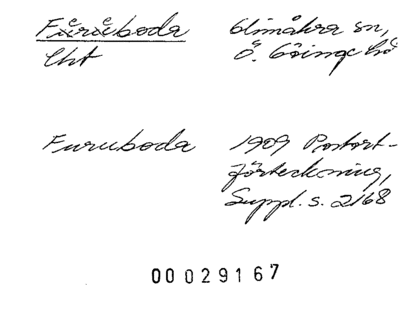 Furuboda Glimåkra sn,
Lht Ö. Göinge hd
Furuboda 1909 Postort-
förteckning,
Suppl. s. 2168
00 029167